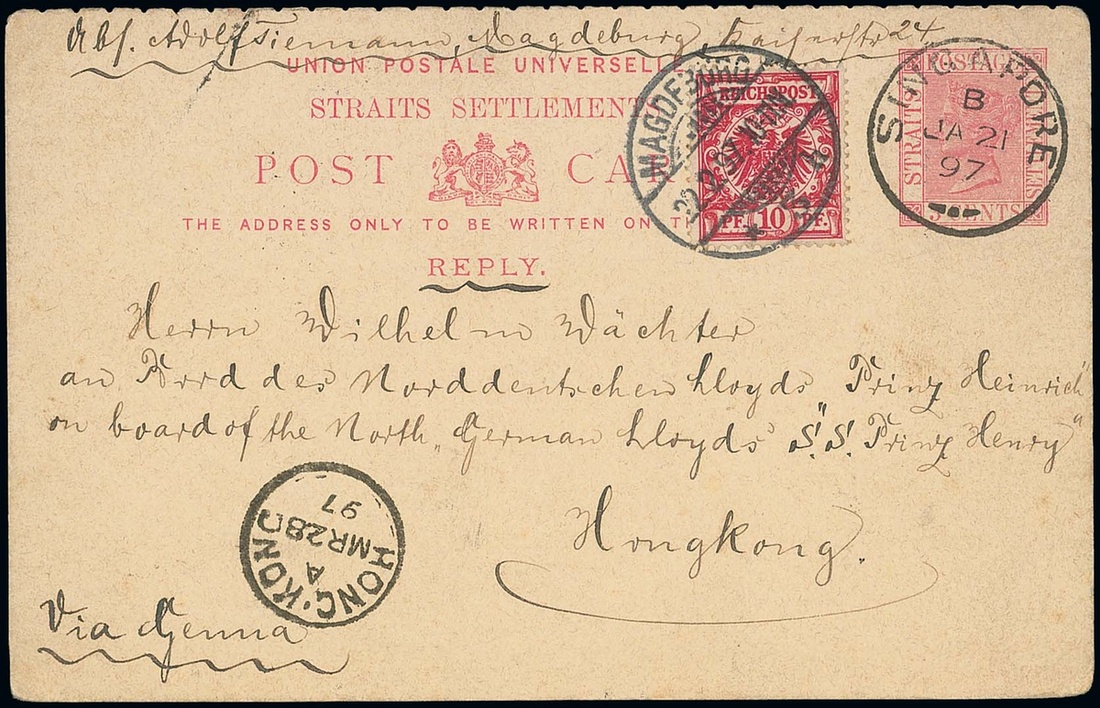 Abs. Adolf Tiemann, Magdeburg, Kaiserstr 24
UNION POSTALE UNIVERSELLE
STRAITS SETTLEMENTS
POST CA
THE ADDRESS ONLY TO BE WRITTEN ON T
REPLY.
MAGDEBURG
22 2 97 10-11N
REICHSPOST
PF. 10 PF.
POSTAGE
STRAITS
CENTS
SINGAPORE
B
JA 21
97
Herrn Wilhelm Wächter
an Bord des Norddeutschen Lloyds „Prinz Heinrich"
on board of the North „German Lloyds" S.S. „Prinz Henry"
Hongkong.
HONG-KONG
A
MR 28
97
Via Genua